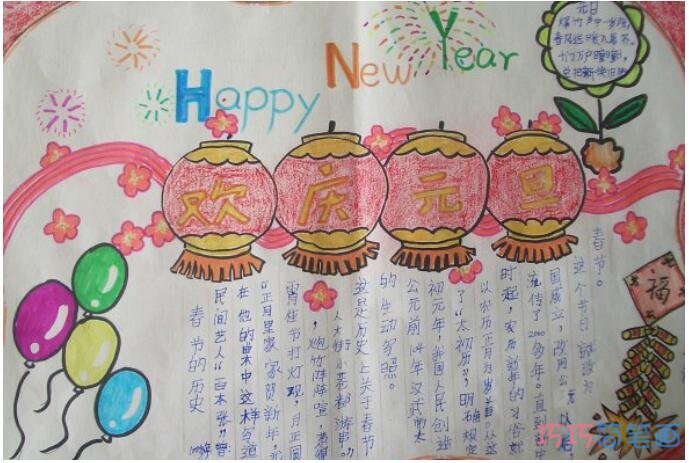 Happy New Year
元日
爆竹声中一岁除,
春风送暖入屠苏。
千门万户曈曈日,
总把新桃换旧符
欢庆元旦
春节的历史
民间艺人“百本张”曾
在他的集中这样写道
“正月里家家贺新年,
宵佳节打灯观,月正圆
,炮竹阵阵喧,惹得
人大街小巷都游串。”
这是历史上关于春节
的生动写照。
公元前104年汉武帝太
初元年,我国人民创造
了“太初历”,明确规定
以农历正月为岁首。从这
时起,农历新年的习俗就
流传了2000多年。直到中
国成立,改用公元以后
这个节日就改为
春节。
福
巧巧简笔画